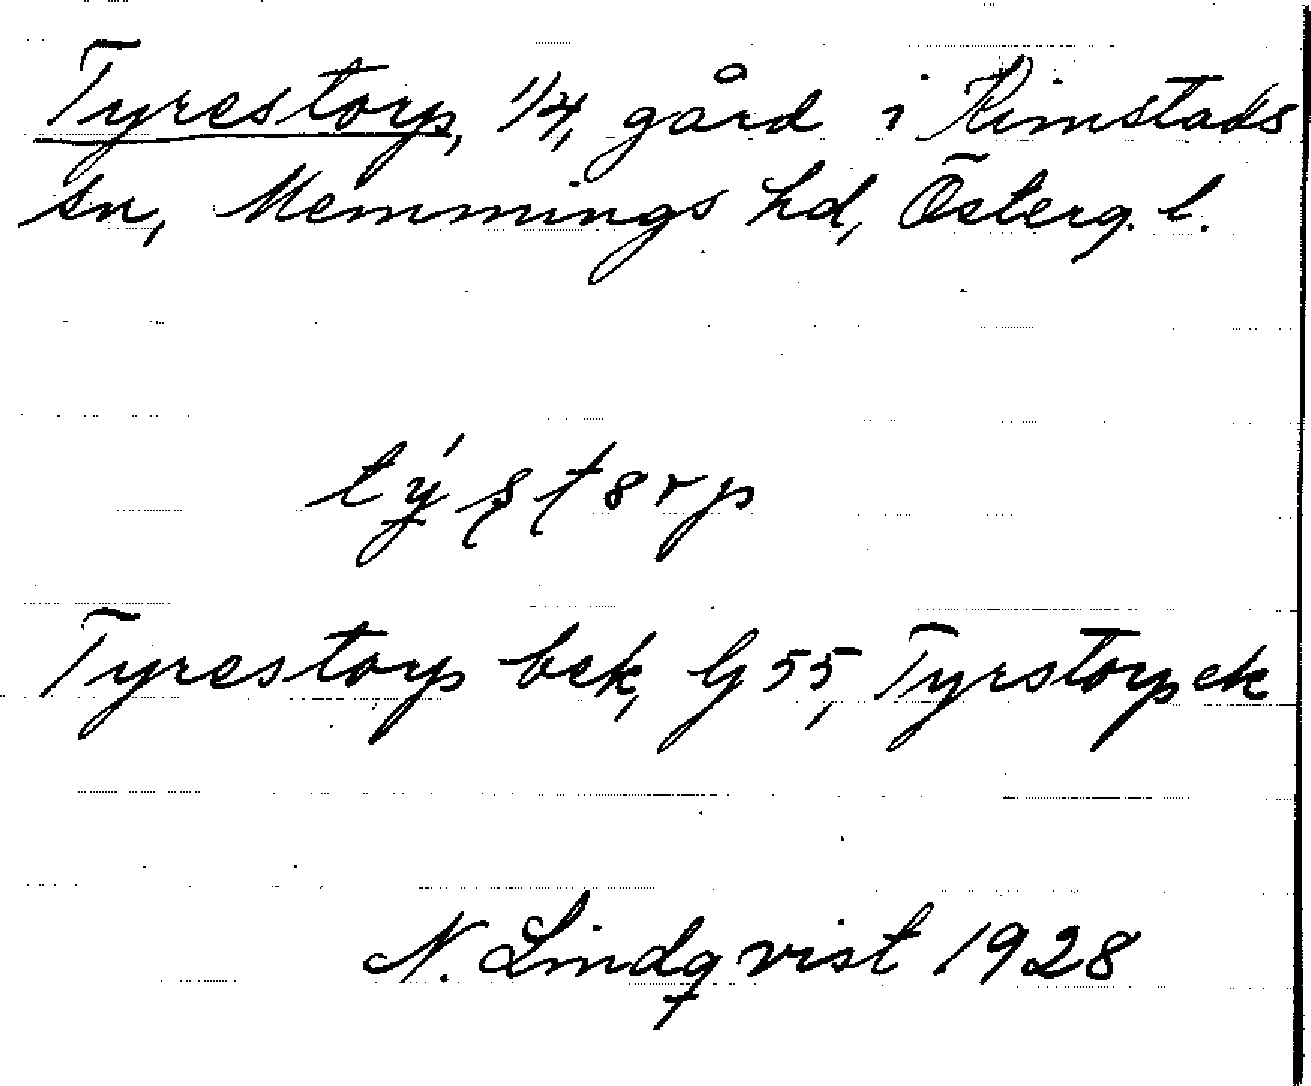 Tyrestorp, 1/4, gård i Kimstads
sn, Memmings hd, Österg. l.
Tyrestorp bek, G 55, Tyrstorp ek
N. Lindqvist 1928